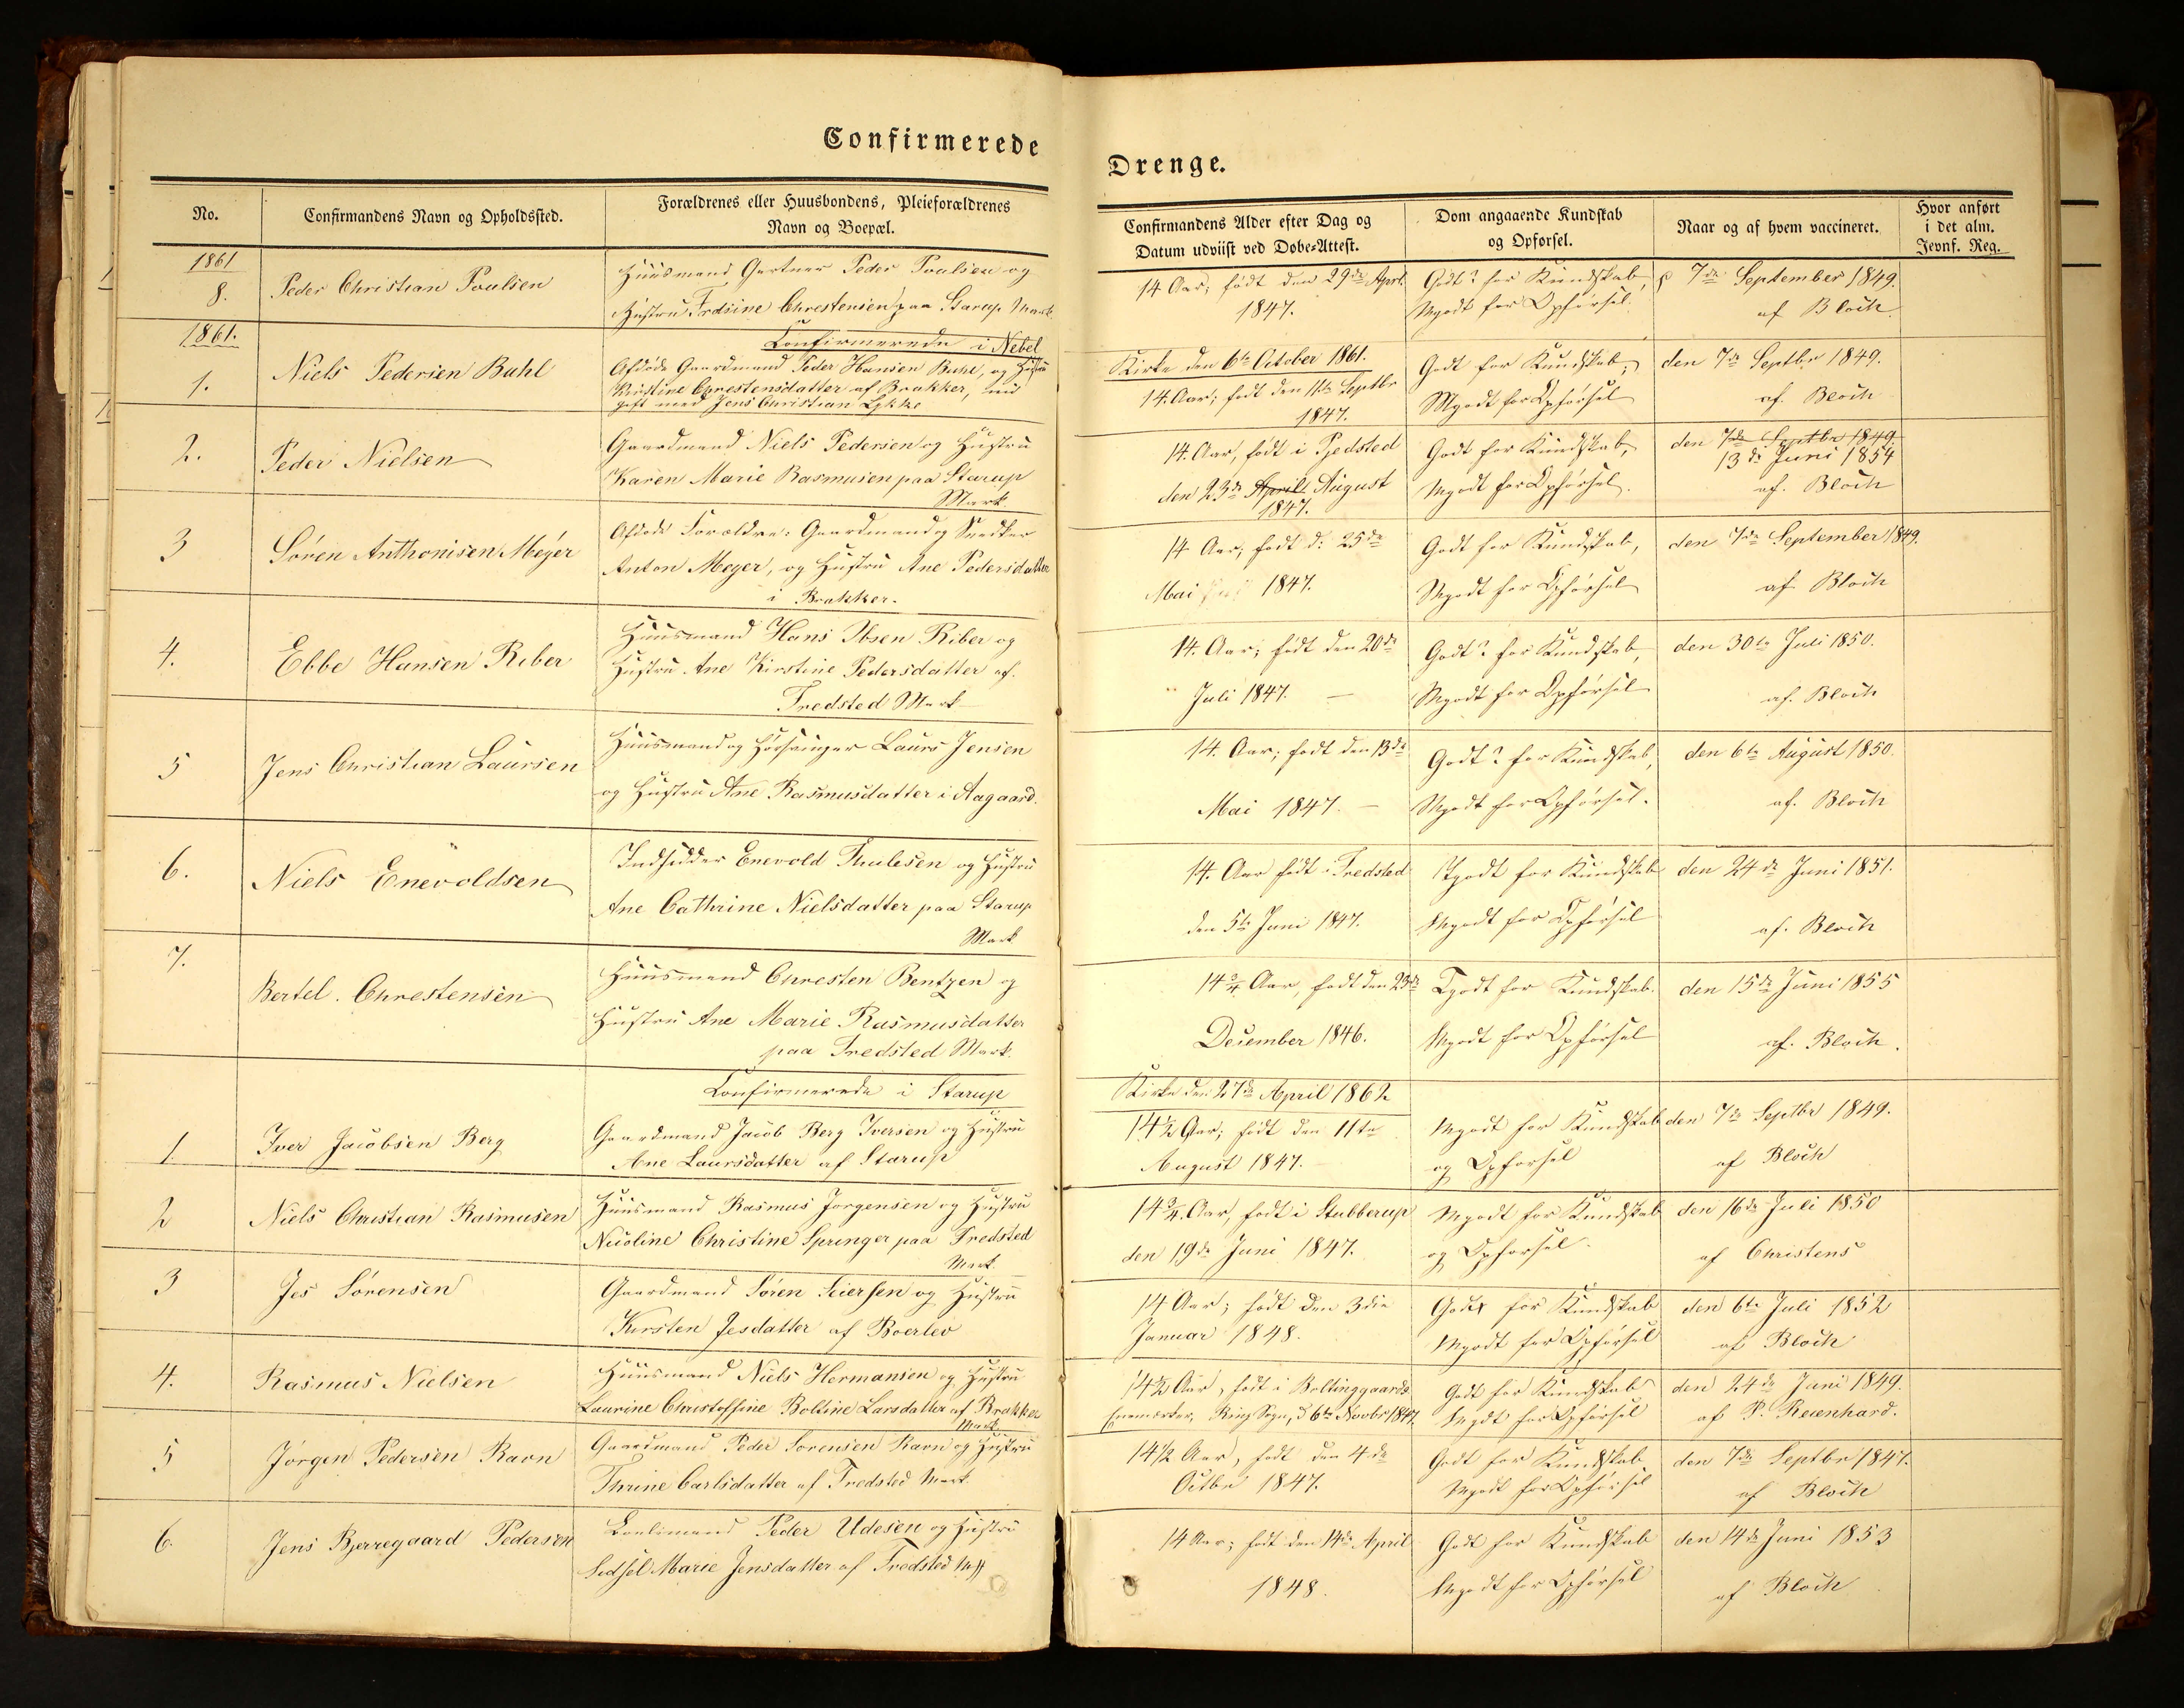 Confirmerede
Drenge.
No.
Confirmandens Navn og Opholdssted.
Forældrenes eller Huusbondens, Pleieforældrenes
Navn og Boepæl.
Confirmandens Alder efter Dag og
Datum udviist ved Døbe=Attest.
Dom angaaende Kundskab
og Opførsel.
Naar og af hvem vaccineret.
Hvor anført
i det alm.
Jevnf. Reg.
1861
8.
Peder Christian Poulsen
Huusmand Gartner Peder Poulsen og
Hustru Chrestensen paa Starup Mark
14 Aar, født den 29de Apri.
1847.
Godt? for Kundskab,
Mgodt for Opførsel.
7de September 1849.
af Bloch.
1861.
Confirmerede i Nebel
Kirke den 6te October 1861.
1.
Niels Pedersen Buhl
Afdøde Gaardmand Peder Hansen Buhl, og Hustru
Kristine Chrestensdatter af Brakker, nu
gift med Jens Christian Lykke
14. Aar; født den 11te Septbr
1847.
Godt for Kundskab,
Mgodt for Opførsel
den 7de Septbr 1849.
af. Bloch
2.
Peder Nielsen
Gaardmand Niels Pedersen og Hustru
Karen Marie Rasmusen paa Starup
Mark
14. Aar, født i Pjedsted
den 23de April August
1847.
Godt for Kundskab,
Mgodt for Opførsel.
den 7de Septbr 1849.
13de Juni 1854
af. Bloch
3
Søren Anthonisen Meyer
Afdøde Forældre: Gaardmand og Snedker
Anton Meyer, og Hustru Ane Pedersdatter
i Brakker.
14 Aar; født d: 25de
Mai 1847.
Godt for Kundskab,
Mgodt for Opførsel
den 7de September 1849.
af Bloch
4.
Ebbe Hansen Riber
Huusmand Hans Ibsen Riber og
Hustru Ane Kirstine Pedersdatter af.
Fredsted Mark
14. Aar; født den 20de
Juli 1847. —
Godt? for Kundskab,
Mgodt for Opførsel
den 30te Juli 1850.
af. Bloch
5
Jens Christian Laursen
Huusmand og Laurs Jensen
og Hustru Ane Rasmusdatter i Aagaard.
14. Aar; født den 13de
Mai 1847. —
Godt? for Kundskab,
Mgodt for Opførsel.
den 6te August 1850.
af. Bloch
6.
Niels Enevoldsen
Indsidder Enevold Thulesen og Hustru
Ane Cathrine Nielsdatter paa Starup
Mark
14. Aar født i Fredsted
den 5te Juni 1847.
Tgodt for Kundskab
Mgodt for Opførsel
den 24de Juni 1851.
af. Bloch
7.
Bertel. Chrestensen
Huusmand Chresten Bentzen og
Hustru Ane Marie Rasmusdatter
paa Fredsted Mark.
14 3/4 Aar, født den 23de
December 1846.
Tgodt for Kundskab.
Mgodt for Opførsel
den 15de Juni 1855
af. Bloch.
Confirmerede i Starup
Kirke den 27de April 1862
1.
Iver Jacobsen Berg
Gaardmand Jacob Berg Iversen og Hustru
Ane Laursdatter af Starup
14 1/2 Aar; født den 11te
August 1847.
Mgodt for Kundskab
og Opførsel
den 7de Septbr 1849.
af Bloch
2
Niels Christian Rasmusen
Huusmand Rasmus Jørgensen og Hustru
Nicoline Christine Springer paa Fredsted
Mark
14 3/4. Aar, født i Stubberup
den 19de Juni 1847.
Mgodt for Kundskab
og Opførsel.
den 16de Juli 1850
af Christens
3
Jes Sørensen
Gaardmand Søren Seiersen og Hustru
Kirsten Jesdatter af Boerlev
14 Aar; født den 3die
Januar 1848.
Godt for Kundskab
Mgodt for Opførsel
den 6te Juli 1852
af Bloch
4.
Rasmus Nielsen
Huusmand Niels Hermansen og Hustru
Laurine Christoffine Boltine Larsdatter af Brakker
Mark
14 1/2 Aar, født i Boltinggaards
Ring Sogn, d 6te Novbr 1847.
Godt for Kundskab
Mgodt for Opførsel
den 24de Juni 1849.
af P. Reienhard.
5
Jørgen Pedersen Ravn
Gaardmand Peder Sørensen Ravn og Hustru
Thrine Carlsdatter af Fredsted Mark.
14 1/2 Aar, født den 4de
Octbr 1847.
Godt for Kundskab
Mgodt for Opførsel
den 7de Septbr 1847.
af Bloch
6.
Jens Bjerregaard Pedersen
Boelsmand Peder Udesen og Hustru
Sidsel Marie Jensdatter af Fredsted M
14 Aar; født den 14de April
1848.
Godt for Kundskab
Mgodt for Opførsel
den 14de Juni 1853
af Bloch